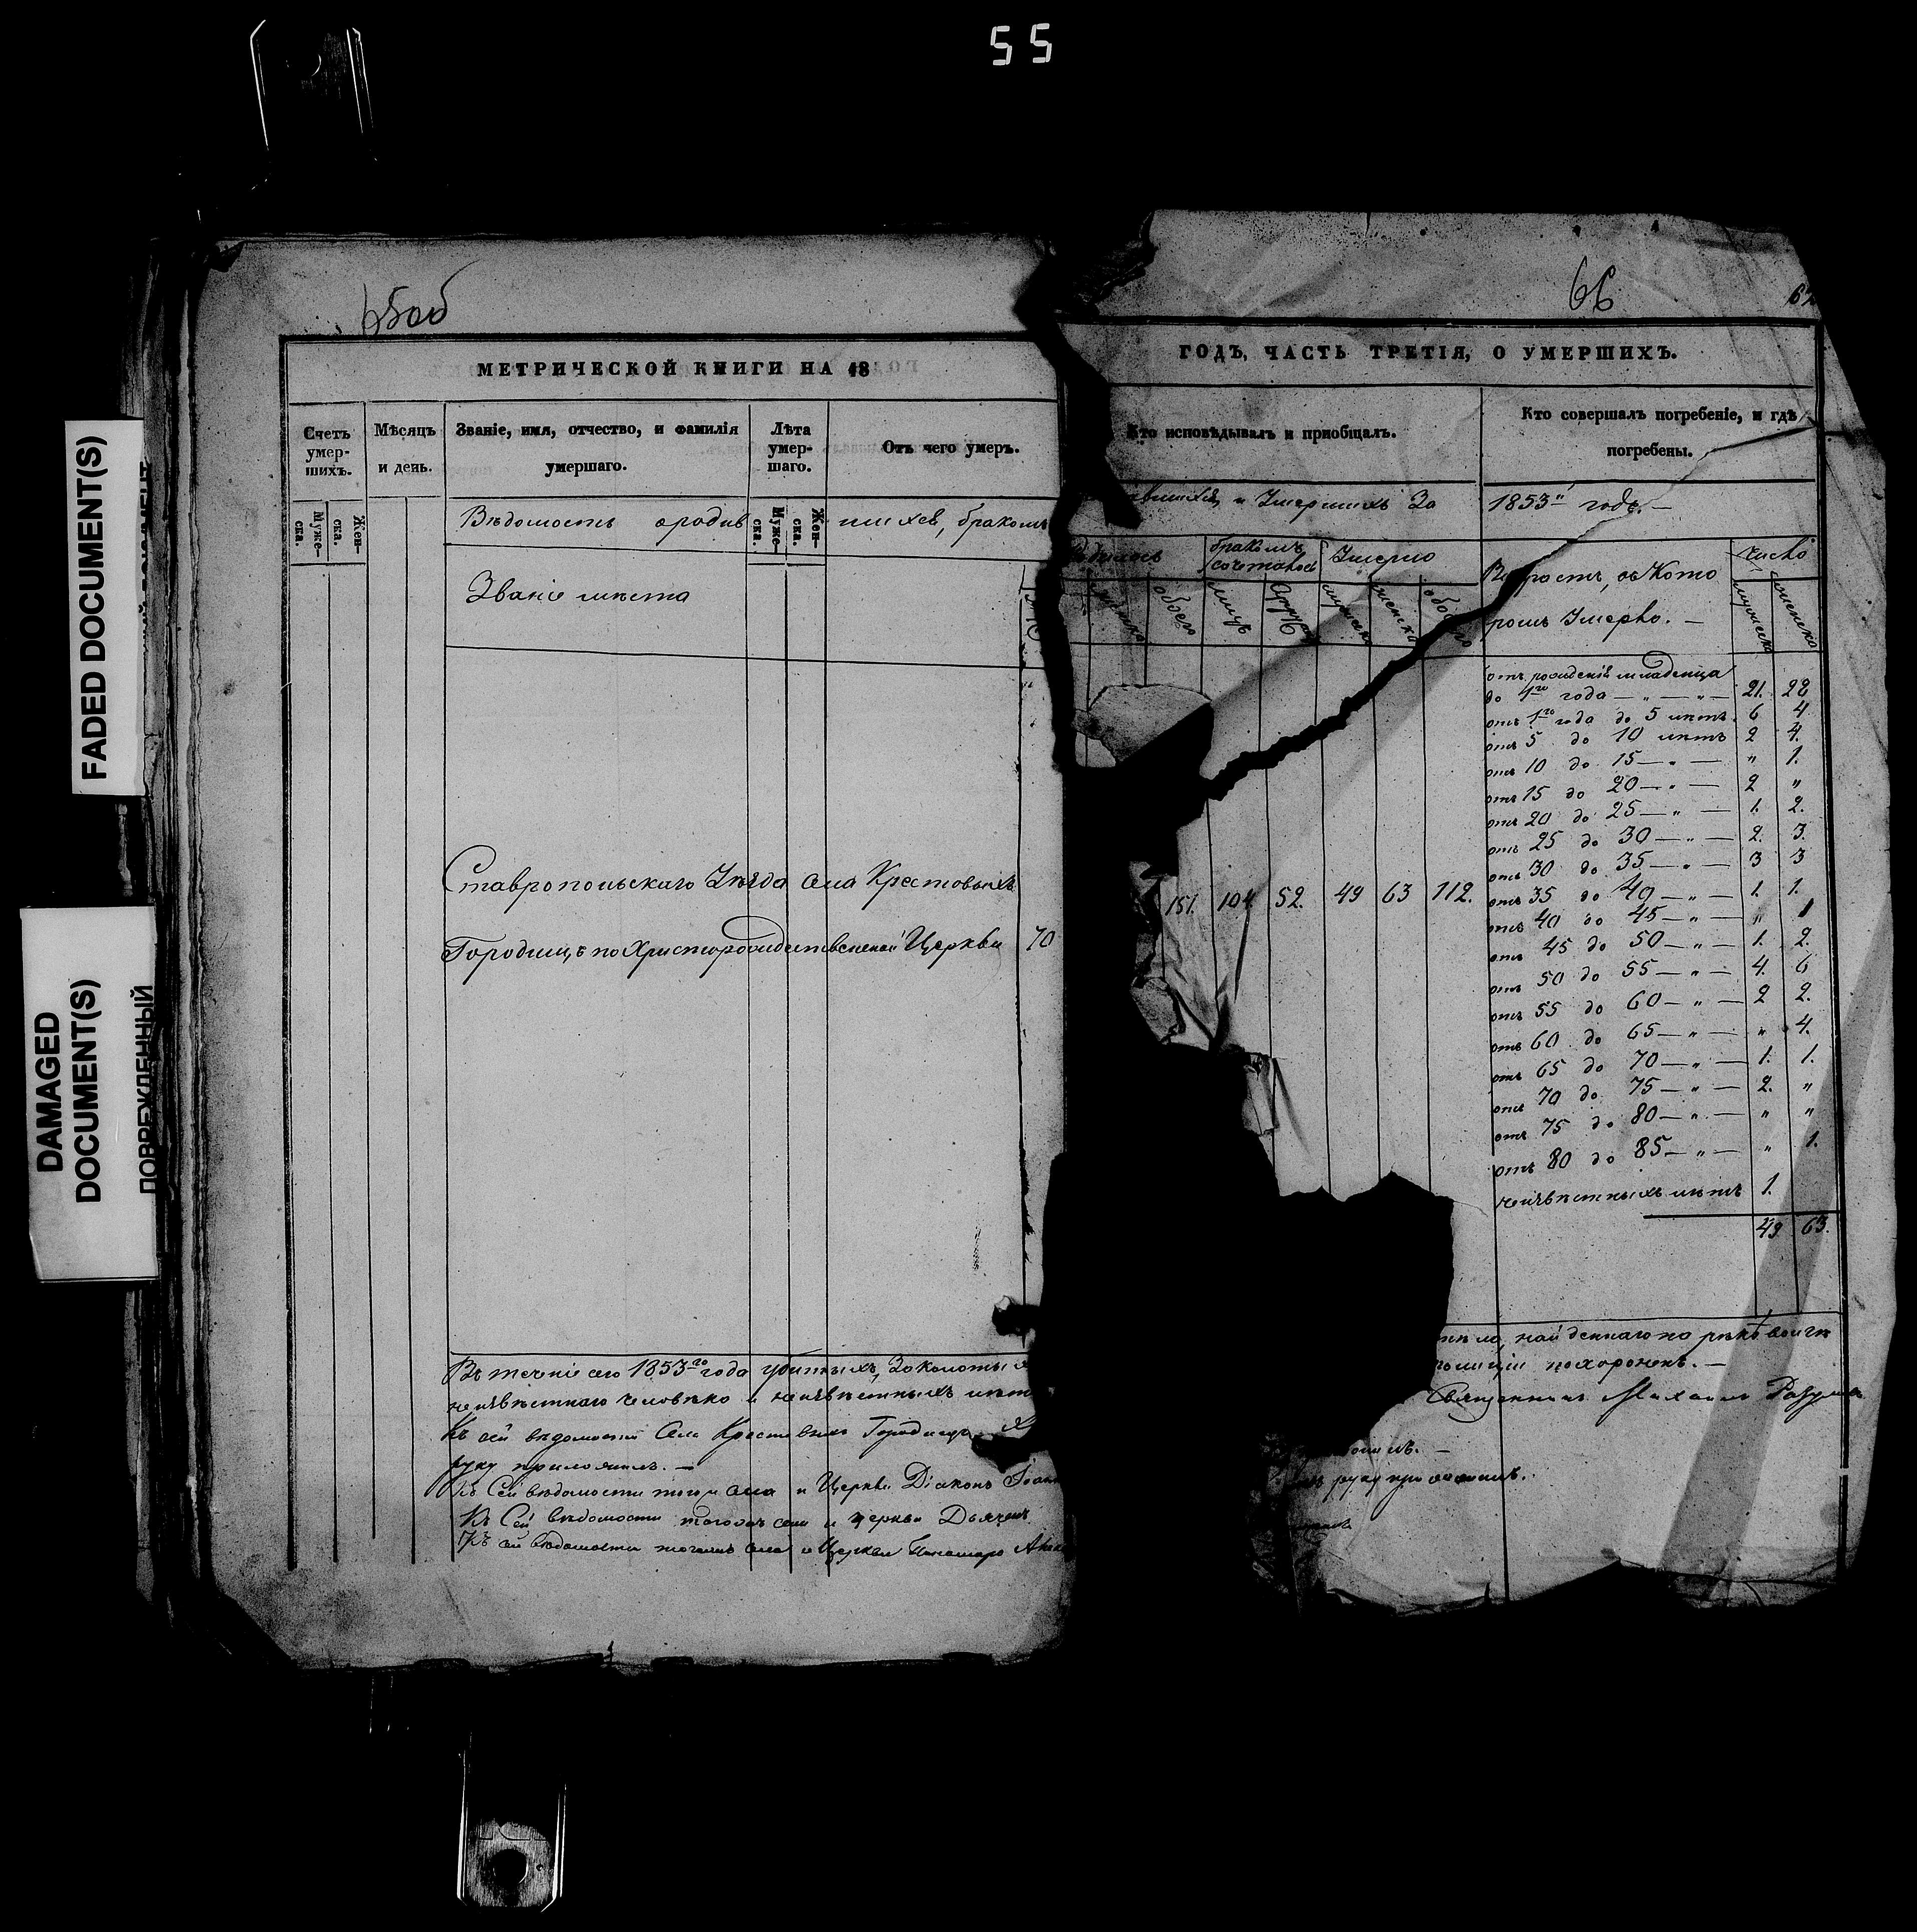 55
FADED DOCUMENT(S)
DAMAGED
DOCUMENT(S)
ПОВРЕЖДЕННЫЙ
65об
МЕТРИЧЕСКОЙ КНИГИ НА 18
Счетъ умер-шихъ.
Муже-ска.
Жен-ска.
Мѣсяцъ и день.
Званіе, имя, отчество, и фамилія умершаго.
Лѣта умер-шаго.
Муже-ска.
Жен-ска.
Отъ чего умеръ.
Вѣдомость о родив шихся, бракомъ
Званіе мѣста
Ставропольскаго Уѣзда села Крестовыхъ
Городищъ по Христорождественской Церкви 70
Въ теченіе сего 1853го года убитыхъ, Заколоты
неизвѣстнаго человѣка и неизвѣстныхъ лѣтъ
Къ сей вѣдомости Села Крестовыхъ Городищъ
руку приложилъ. —
Къ Сей вѣдомости того села и Церкви Діаконъ Іоан
Къ Сей вѣдомости тогожъ села и церкви Дьячекъ
Къ сей вѣдомости тогожъ села и Церкви Пономарь
66
ГОДЪ, ЧАСТЬ ТРЕТІЯ, О УМЕРШИХЪ.
Кто исповѣдывалъ и пріобщалъ.
Кто совершалъ погребеніе, и гдѣ
погребены.
авшихся, и Умершихъ За 1853й годъ. —
бракомъ сочеталось
Умерло
Возрастъ, въ кото
ромъ Умерло. —
число
обоего
лицъ
мужеска
женска
обоего
мужеска
женска
151. 104 52. 49 63 112.
отъ рожденія младенца
до 1го года — „ — „ — 21. 28
отъ 1го года до 5 лѣтъ 6 4
отъ 5 до 10 лѣтъ 2 4.
отъ 10 до 15 — „ — „ 1.
отъ 15 до 20 — „ — 2 „
отъ 20 до 25 — „ — 1. 2.
отъ 25 до 30 — „ — 2. 3.
отъ 30 до 35 — „ — 3 3
отъ 35 до 40 — „ — 1. 1.
отъ 40 до 45 — „ — „ 1
отъ 45 до 50 — „ — 1. 2.
отъ 50 до 55 — „ — 4. 6
отъ 55 до 60 — „ — 2 2.
отъ 60 до 65 — „ — „ 4.
отъ 65 до 70 — „ — 1. 1.
отъ 70 до 75 — „ — 2. „
отъ 75 до 80 — „ — „ „
отъ 80 до 85 — „ — „ 1.
неизвѣстныхъ лѣтъ 1.
49 63.
тѣло, найденнаго на рѣкѣ волгѣ
полиціи похороненъ. —
Священникъ Михаилъ
руку приложилъ.